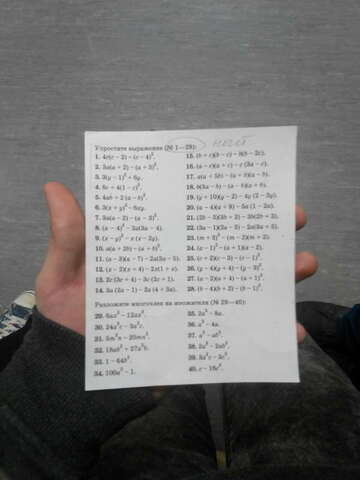 Упростите выражение (№ 1—28):
1. 4c(c − 2) − (c − 4)².
2. 3a(a + 2) − (a + 3)².
3. 3(y − 1)² + 6y.
4. 8c + 4(1 − c)².
5. 4ab + 2(a − b)².
6. 3(x + y)² − 6xy.
7. 3a(a − 2) − (a − 3)².
8. (a − 4)² − 2a(3a − 4).
9. (x − y)² − x(x − 2y).
10. a(a + 2b) − (a + b)².
11. (a − 3)(a − 7) − 2a(3a − 5).
12. (x − 2)(x + 4) − 2x(1 + x).
13. 2c(3c + 4) − 3c(2c + 1).
14. 3a(2a − 1) − 2a(4 + 3a).
15. (b + c)(b − c) − b(b − 2c).
16. (a − c)(a + c) − c(3a − c).
17. a(a + 5b) − (a + b)(a − b).
18. b(3a − b) − (a − b)(a + b).
19. (y + 10)(y − 2) − 4y(2 − 3y).
20. (a − 4)(a + 9) − 5a(1 − 2a).
21. (2b − 3)(3b + 2) − 3b(2b + 3).
22. (3a − 1)(2a − 3) − 2a(3a + 5).
23. (m + 3)² − (m − 2)(m + 2).
24. (a − 1)² − (a + 1)(a − 2).
25. (c + 2)(c − 3) − (c − 1)².
26. (y − 4)(y + 4) − (y − 3)².
27. (a − 2)(a + 4) − (a + 1)².
28. (b − 4)(b + 2) − (b − 1)².
Разложите многочлен на множители (№ 29—40):
29. 6ax² − 12ax³.
30. 24x²c − 3x²c.
31. 5m²n − 20mn².
32. 18ab² + 27a²b.
33. 1 − 64b².
34. 100a² − 1.
35. 2a² − 8a.
36. a³ − 4a.
37. a³ − ab².
38. 2a² − 2ab².
39. 3a²c − 3c³.
40. c − 16c³.